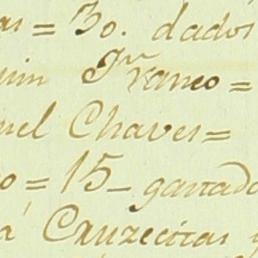 as = 30. dados
uin Franco =
uel Chaves =
o = 15 - ganado
á Cruzecitas y